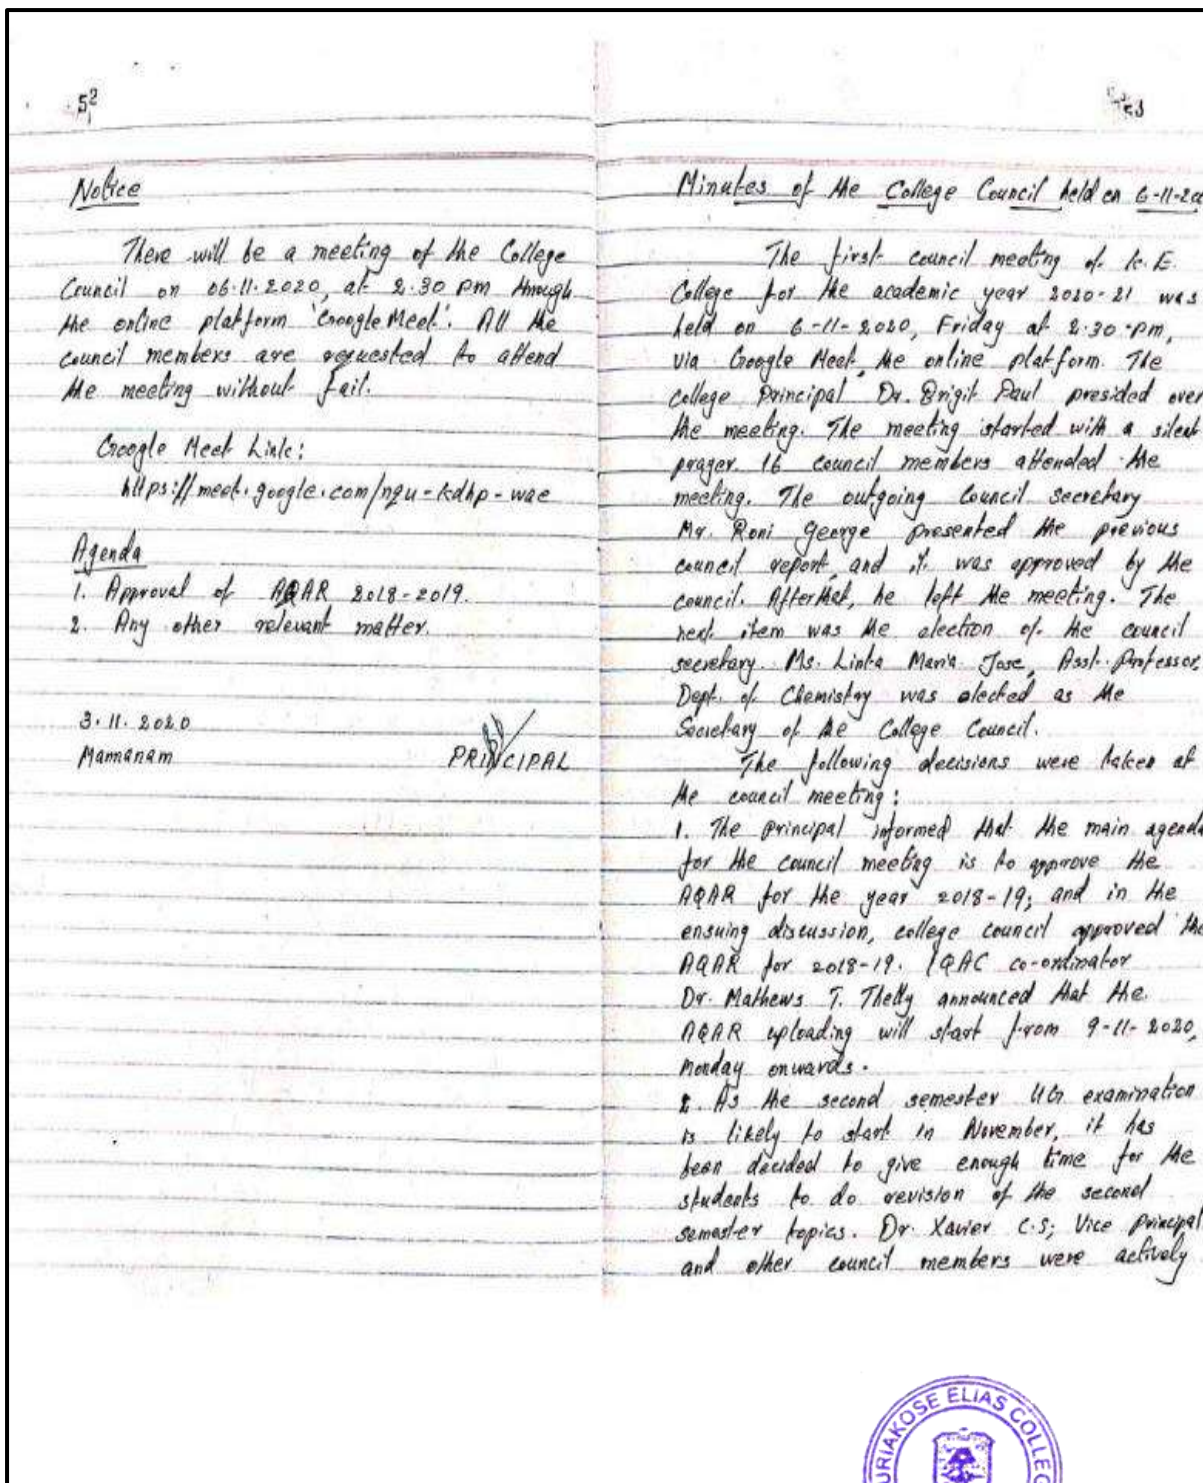 52
Notice
There will be a meeting of the College
Council on 06.11.2020, at 2.30 pm through
the online platform 'Google Meet'. All the
council members are requested to attend
the meeting without fail.
Google Meet Link:
https://meet.google.com/nqu-kdhp-wae
Agenda
1. Approval of AQAR 2018-2019.
2. Any other relevant matter.
3.11.2020
Mannanam
PRINCIPAL
53
Minutes of the College Council held on 6-11-20
The first council meeting of K.E.
College for the academic year 2020-21 was
held on 6-11-2020, Friday at 2.30 pm,
via Google Meet, the online platform. The
college Principal Dr. Brigit Paul presided over
the meeting. The meeting started with a silent
prayer. 16 council members attended the
meeting. The outgoing Council secretary
Mr. Roni George presented the previous
council report, and it was approved by the
council. After that, he left the meeting. The
next item was the election of the council
secretary. Ms. Linta Maria Jose, Asst. Professor,
Dept. of Chemistry was elected as the
Secretary of the College Council.
The following decisions were taken at
the council meeting:
1. The principal informed that the main agenda
for the council meeting is to approve the
AQAR for the year 2018-19; and in the
ensuing discussion, college council approved the
AQAR for 2018-19. IQAC co-ordinator
Dr. Mathews T. Thelly announced that the
AQAR uploading will start from 9-11-2020,
Monday onwards.
2. As the second semester UG examination
is likely to start in November, it has
been decided to give enough time for the
students to do revision of the second
semester topics. Dr. Xavier C.S; Vice principal
and other council members were actively
URIAKOSE ELIAS COLLEG